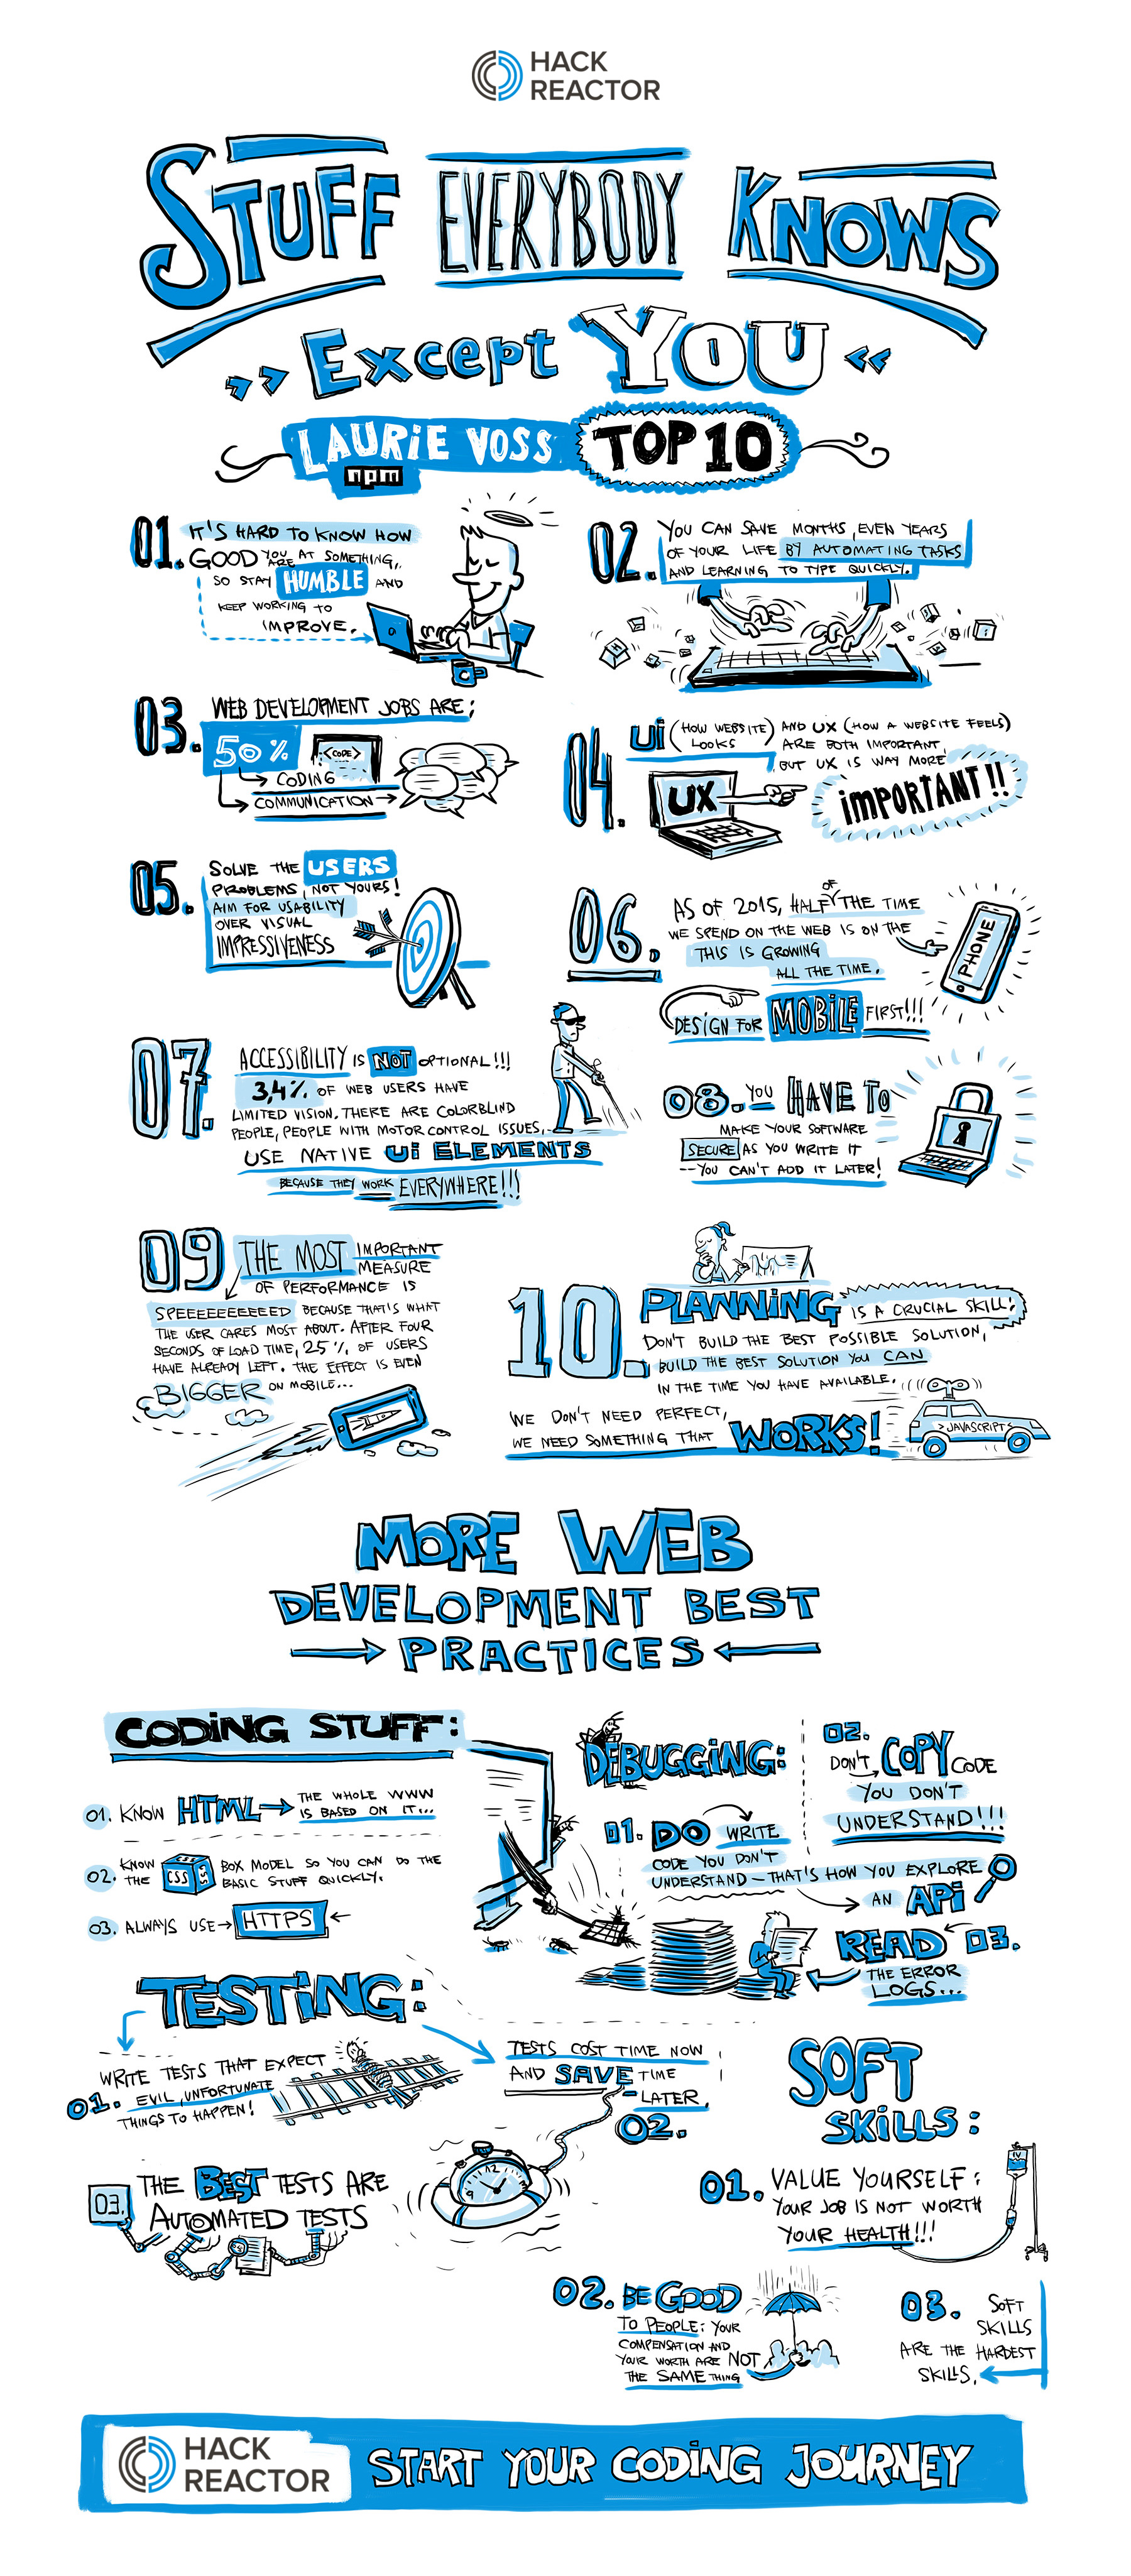 HACK
REACTOR
STUFF EVERYBODY KNOWS
Except YOU
LAURIE VOSS TOP 10
npm
01. IT'S HARD TO KNOW HOW
GOOD YOU ARE AT SOMETHING,
SO STAY HUMBLE AND
KEEP WORKING TO
IMPROVE.
02. YOU CAN SAVE MONTHS, EVEN YEARS
OF YOUR LIFE BY AUTOMATING TASKS
AND LEARNING TO TYPE QUICKLY.
03. WEB DEVELOPMENT JOBS ARE:
50%
<CODE>
CODING
COMMUNICATION
04. Ui (HOW WEBSITE LOOKS) AND UX (HOW A WEBSITE FEELS)
ARE BOTH IMPORTANT,
BUT UX IS WAY MORE
UX
iMPORTANT!!
05. SOLVE THE USERS
PROBLEMS, NOT YOURS!
AIM FOR USABILITY
OVER VISUAL
IMPRESSIVENESS
06. AS OF 2015, HALF OF THE TIME
WE SPEND ON THE WEB IS ON THE
PHONE
THIS IS GROWING
ALL THE TIME.
DESIGN FOR MOBILE FIRST!!!
07. ACCESSIBILITY IS NOT OPTIONAL!!!
3,4% OF WEB USERS HAVE
LIMITED VISION. THERE ARE COLORBLIND
PEOPLE, PEOPLE WITH MOTOR CONTROL ISSUES,
USE NATIVE Ui ELEMENTS
BECAUSE THEY WORK EVERYWHERE!!!
08. YOU HAVE TO
MAKE YOUR SOFTWARE
SECURE AS YOU WRITE IT
--YOU CAN'T ADD IT LATER!
09 THE MOST IMPORTANT
MEASURE
OF PERFORMANCE IS
SPEEEEEEEEEED BECAUSE THAT'S WHAT
THE USER CARES MOST ABOUT. AFTER FOUR
SECONDS OF LOAD TIME, 25% OF USERS
HAVE ALREADY LEFT. THE EFFECT IS EVEN
BIGGER ON MOBILE...
10. PLANNiNG IS A CRUCIAL SKILL:
DON'T BUILD THE BEST POSSIBLE SOLUTION,
BUILD THE BEST SOLUTION YOU CAN
IN THE TIME YOU HAVE AVAILABLE.
WE DON'T NEED PERFECT,
WE NEED SOMETHING THAT WORKS!
>JAVASCRIPT<
MORE WEB
DEVELOPMENT BEST
PRACTICES
CODiNG STUFF:
01. KNOW HTML THE WHOLE WWW
IS BASED ON IT...
02. KNOW THE CSS BOX MODEL SO YOU CAN DO THE
BASIC STUFF QUICKLY.
03. ALWAYS USE HTTPS
DEBUGGiNG:
01. DO WRITE
CODE YOU DON'T
UNDERSTAND - THAT'S HOW YOU EXPLORE
AN APi
02.
DON'T COPY CODE
YOU DON'T
UNDERSTAND!!!
READ 03.
THE ERROR
LOGS...
TESTiNG:
01. WRITE TESTS THAT EXPECT
EVIL, UNFORTUNATE
THINGS TO HAPPEN!
TESTS COST TIME NOW
AND SAVE TIME
LATER.
02.
03. THE BEST TESTS ARE
AUTOMATED TESTS
12
9
SOFT
SKiLLS:
01. VALUE YOURSELF:
YOUR JOB IS NOT WORTH
YOUR HEALTH!!!
IV
02. BE GOOD
TO PEOPLE: YOUR
COMPENSATION AND
YOUR WORTH ARE NOT
THE SAME THING
03. SOFT
SKILLS
ARE THE HARDEST
SKILLS.
HACK
REACTOR
START YOUR CODiNG JOURNEY